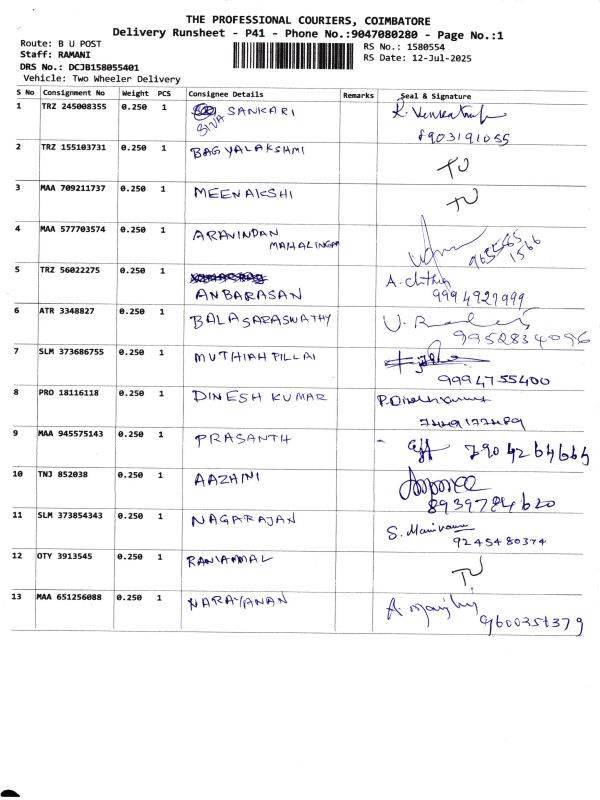 THE PROFESSIONAL COURIERS, COIMBATORE
Delivery Runsheet - P41 - Phone No.:9047080280 - Page No.:1
Route: B U POST
Staff: RAMANI
DRS No.: DCJB158055401
Vehicle: Two Wheeler Delivery
RS No.: 1580554
RS Date: 12-Jul-2025
S No Consignment No Weight PCS Consignee Details Remarks Seal & Signature
1 TRZ 245008355 0.250 1 SIVA SANKARI
8903191055
2 TRZ 155103731 0.250 1 BAGYALAKSHMI
3 MAA 709211737 0.250 1 MEENAKSHI
4 MAA 577703574 0.250 1 ARAVINDAN
MAHALINGAM
5 TRZ 56022275 0.250 1 ANBARASAN A. Chithra
9994927999
6 ATR 3348827 0.250 1 BALASARASWATHY
9952834096
7 SLM 373686755 0.250 1 MUTHIAH PILLAI
9994755400
8 PRO 18116118 0.250 1 DINESH KUMAR P. Dinesh Kumar
9 MAA 945575143 0.250 1 PRASANTH
10 TNJ 852038 0.250 1 AAZHINI
8939784620
11 SLM 373854343 0.250 1 NAGARAJAN S.
9245480374
12 OTY 3913545 0.250 1
13 MAA 651256088 0.250 1 NARAYANAN A.